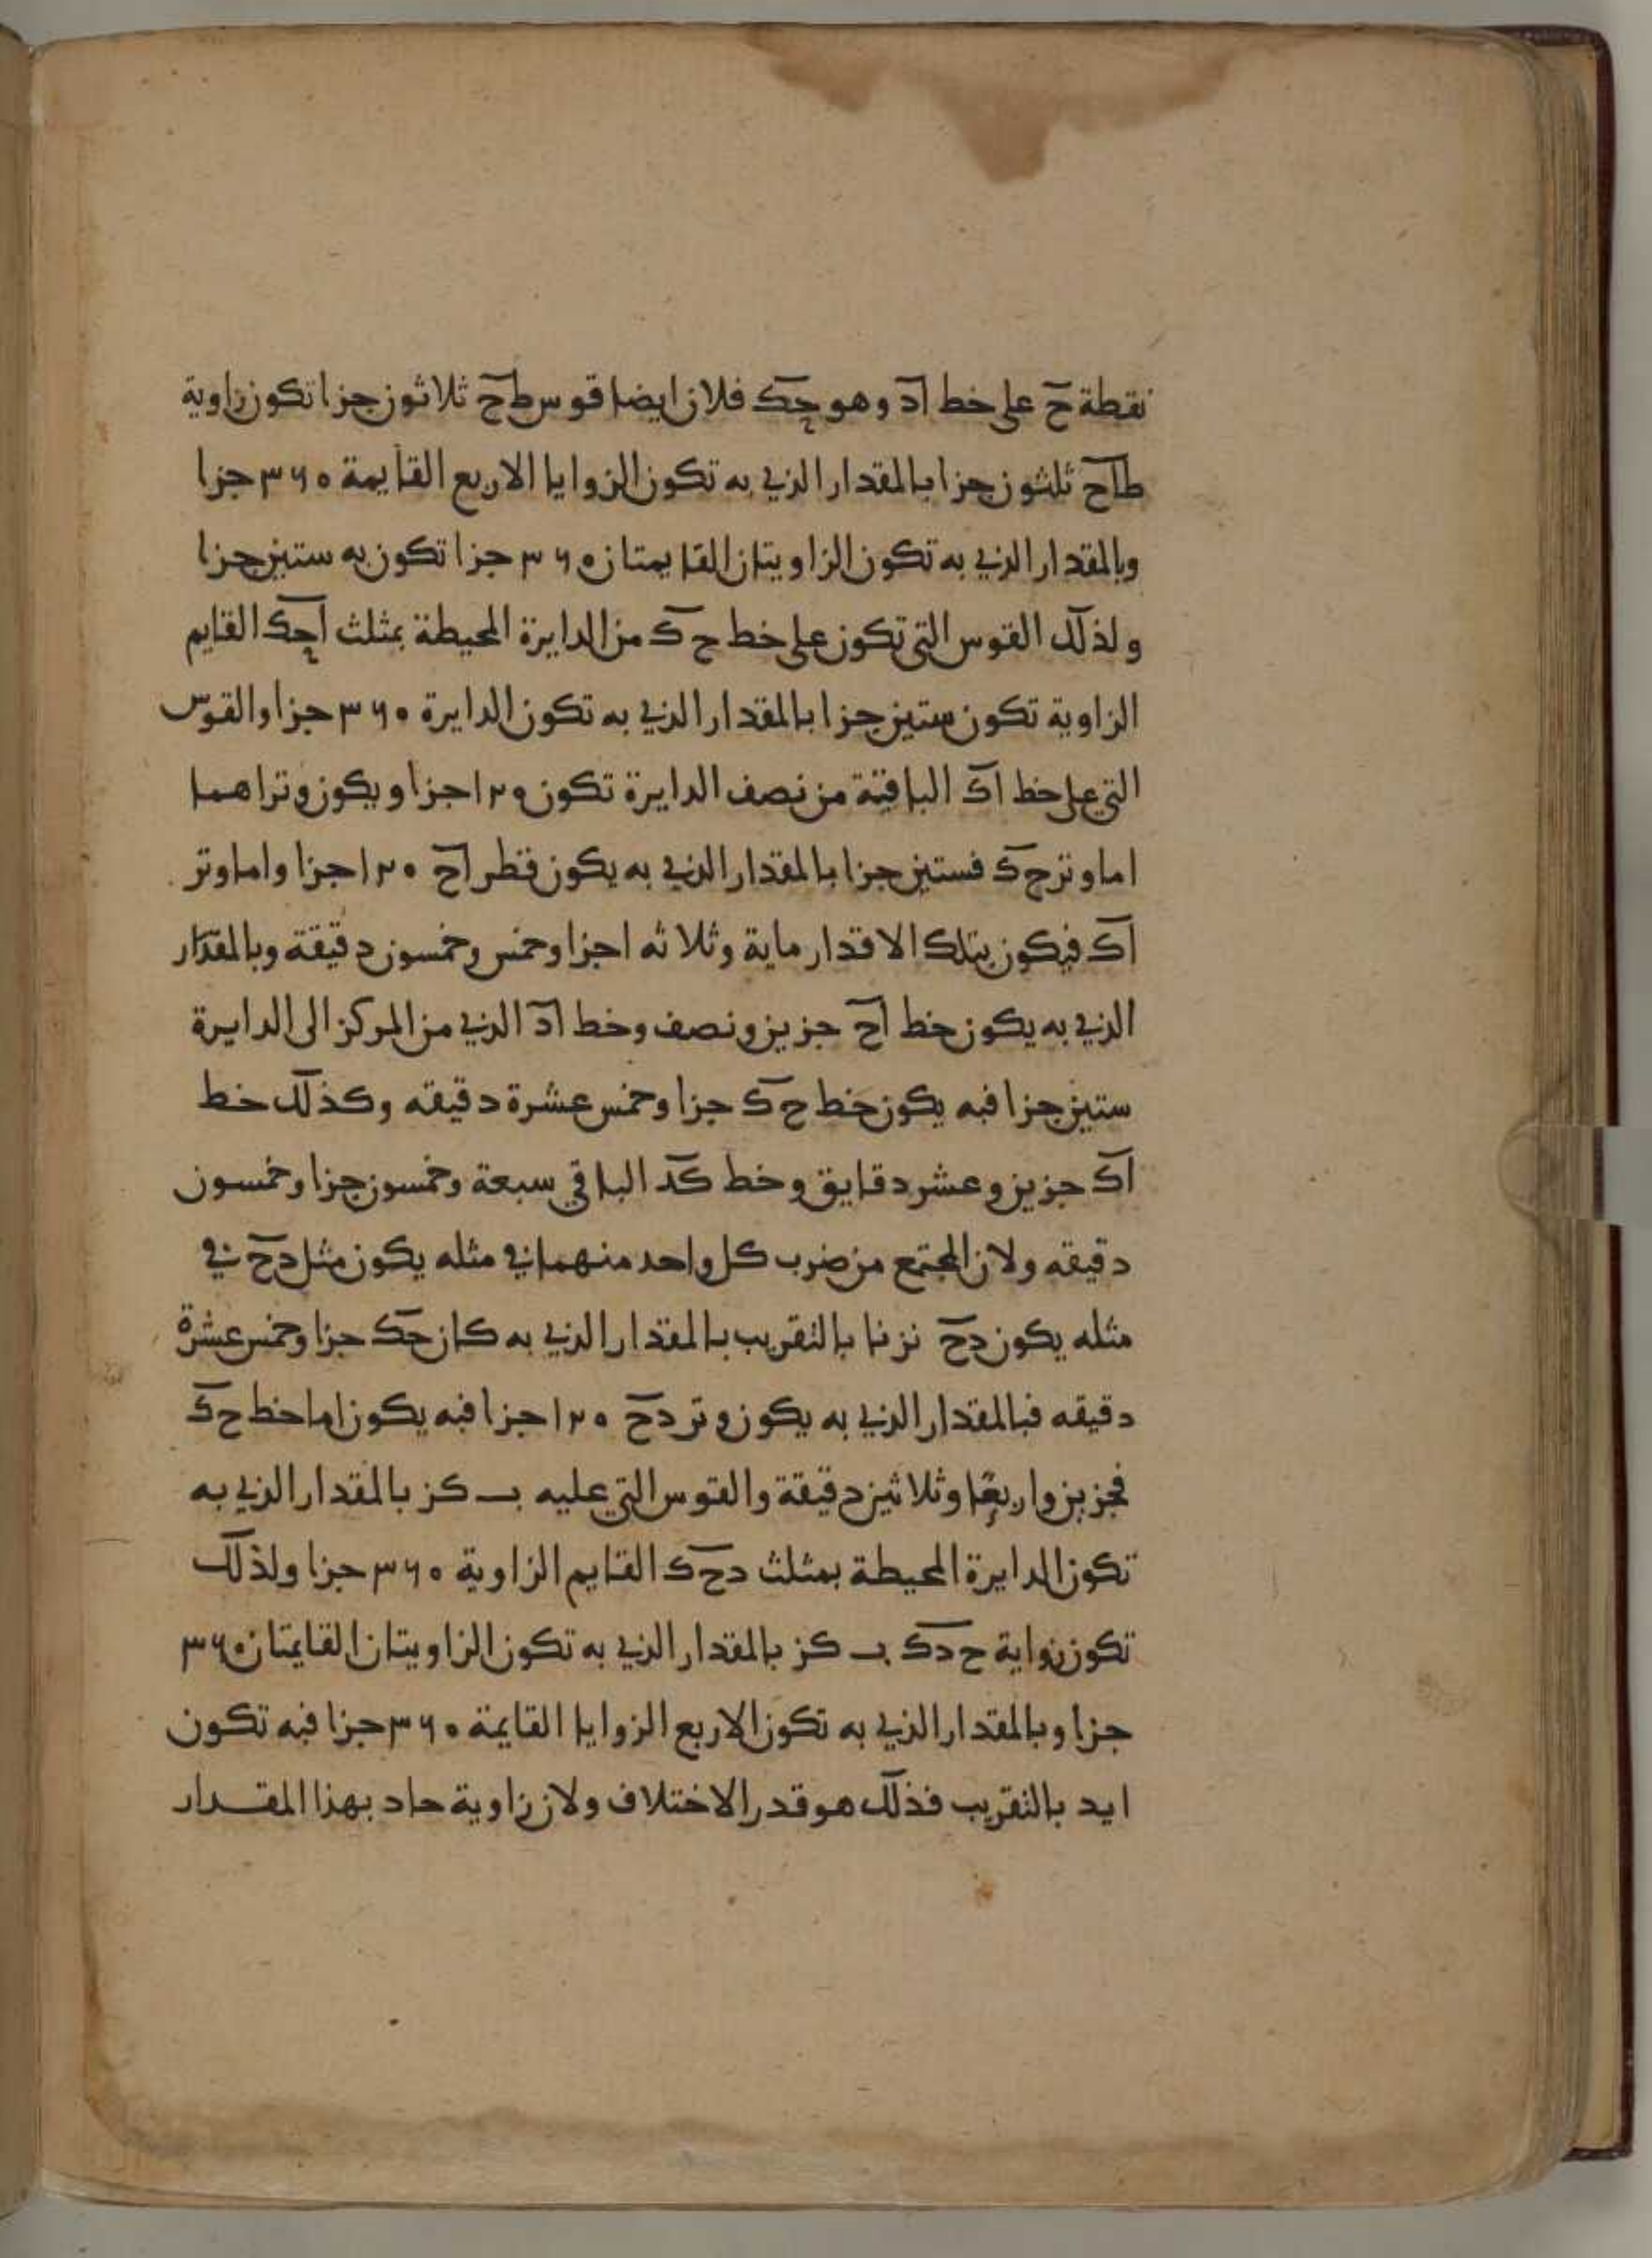 نقطة ح على خط اد وهو حك فلان ايضا قوس طح ثلاثون جزا تكون زاوية
طاح ثلثون جزا بالمقدار الذي به تكون الزوايا الاربع القايمة ۳۶۰ جزا
وبالمقدار الذي به تكون الزاويتان القايمتان ۳۶۰ جزا تكون به ستين جزا
ولذلك القوس التي تكون على خط ح ك من الدايرة المحيطة بمثلث احك القايم
الزاوية تكون ستين جزا بالمقدار الذي به تكون الدايرة ۳۶۰ جزا والقوس
التي على خط اك الباقية من نصف الدايرة تكون ۱۲۰ جزا ويكون وتراهما
اما وتر ح ك فستين جزا بالمقدار الذي به يكون قطر اح ۱۲۰ جزا واما وتر
اك فيكون بتلك الاقدار ماية وثلاثه اجزا وخمس وخمسون دقيقة وبالمقدار
الذي به يكون خط اح جزين ونصف وخط اد الذي من المركز الى الدايرة
ستين جزا فبه يكون خط ح ك جزا وخمس عشرة دقيقه وكذلك خط
اك جزين وعشر دقايق وخط كد الباقي سبعة وخمسون جزا وخمسون
دقيقه ولان المجتمع من ضرب كل واحد منهما في مثله يكون مثل دح في
مثله يكون دح نز نا بالتقريب بالمقدار الذي به كان حك جزا وخمس عشرة
دقيقه فبالمقدار الذي به يكون وتر دح ۱۲۰ جزا فبه يكون اما خط ح ك
فجزين واربعا وثلاثين دقيقة والقوس التي عليه ب كز بالمقدار الذي به
تكون الدايرة المحيطة بمثلث دح ك القايم الزاوية ۳۶۰ جزا ولذلك
تكون زواية ح دك ب كز بالمقدار الذي به تكون الزاويتان القايمتان ۳۶۰
جزا وبالمقدار الذي به تكون الاربع الزوايا القايمة ۳۶۰ جزا فبه تكون
ا يد بالتقريب فذلك هو قدر الاختلاف ولان زاوية حاد بهذا المقدار